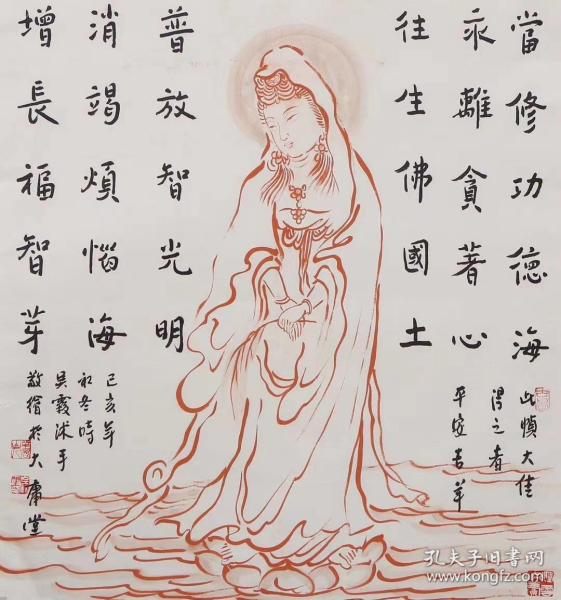 當修功德海
永離貪著心
往生佛國土
普放智光明
消竭煩惱海
增長福智芽
此幀大佳
得之者
平安吉羊
己亥年
初冬時
吳霞沐手
敬繪於大庸堂
孔夫子旧书网
www.kongfz.com